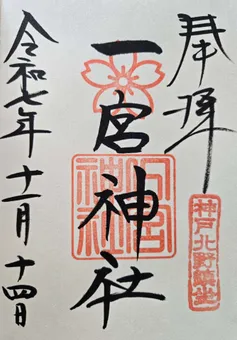 奉拝
神戸北野鎮坐
一宮神社
一宮神社
令和七年十一月十四日